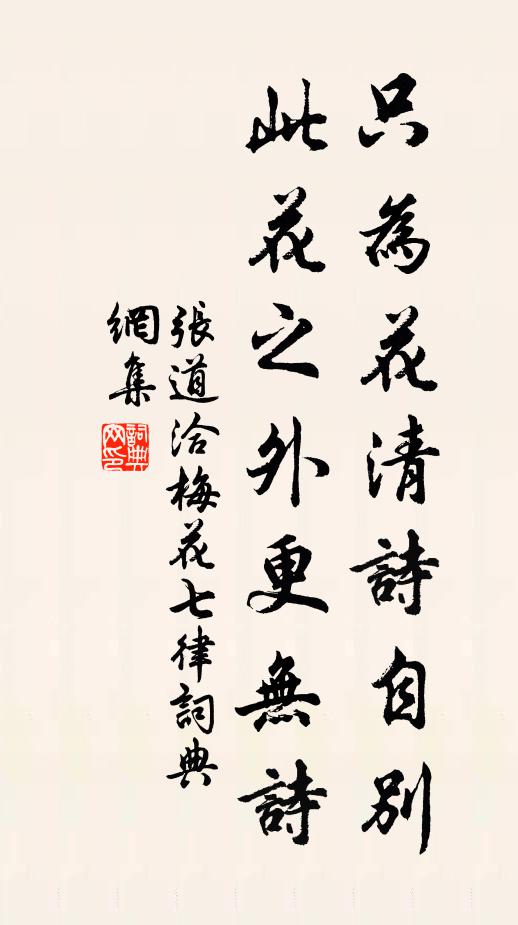 只為花清詩自別
此花之外更無詩
張道洽梅花七律詞典
網集
詞典
网印